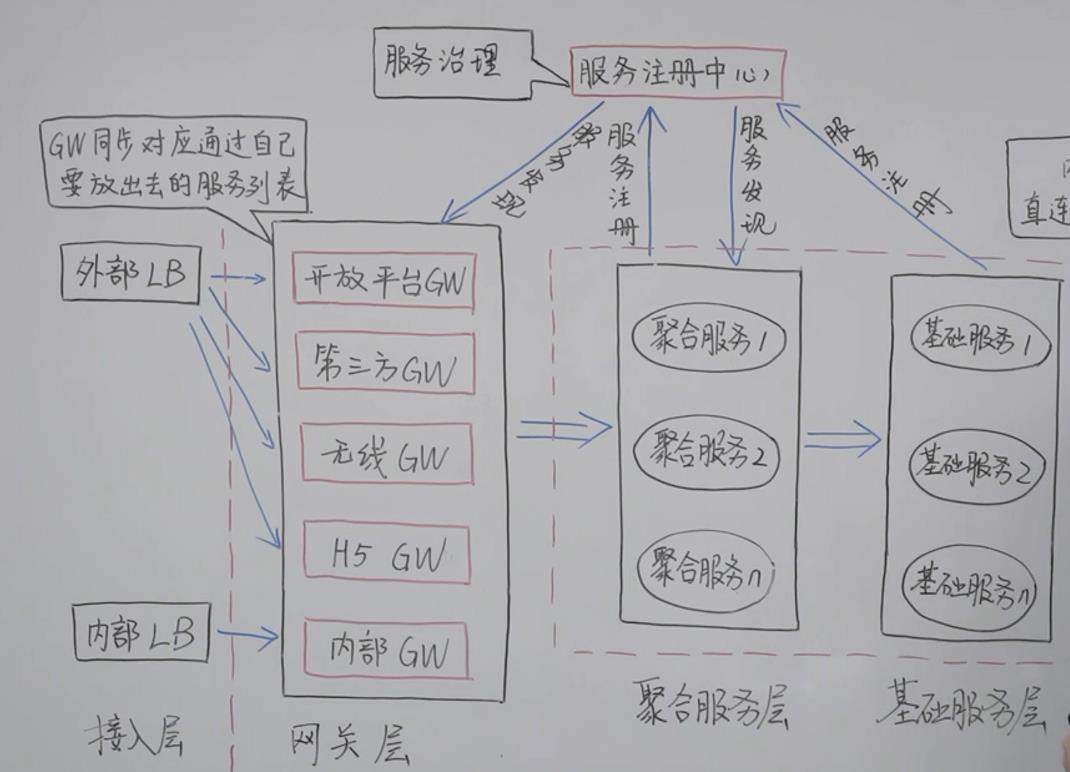 服务治理
服务注册中心
GW同步对应通过自己
要放出去的服务列表
服务发现
服务注册
服务发现
服务注册
直连
外部LB
开放平台GW
第三方GW
无线GW
H5 GW
内部LB
内部GW
聚合服务1
聚合服务2
聚合服务n
基础服务1
基础服务2
基础服务n
接入层
网关层
聚合服务层
基础服务层